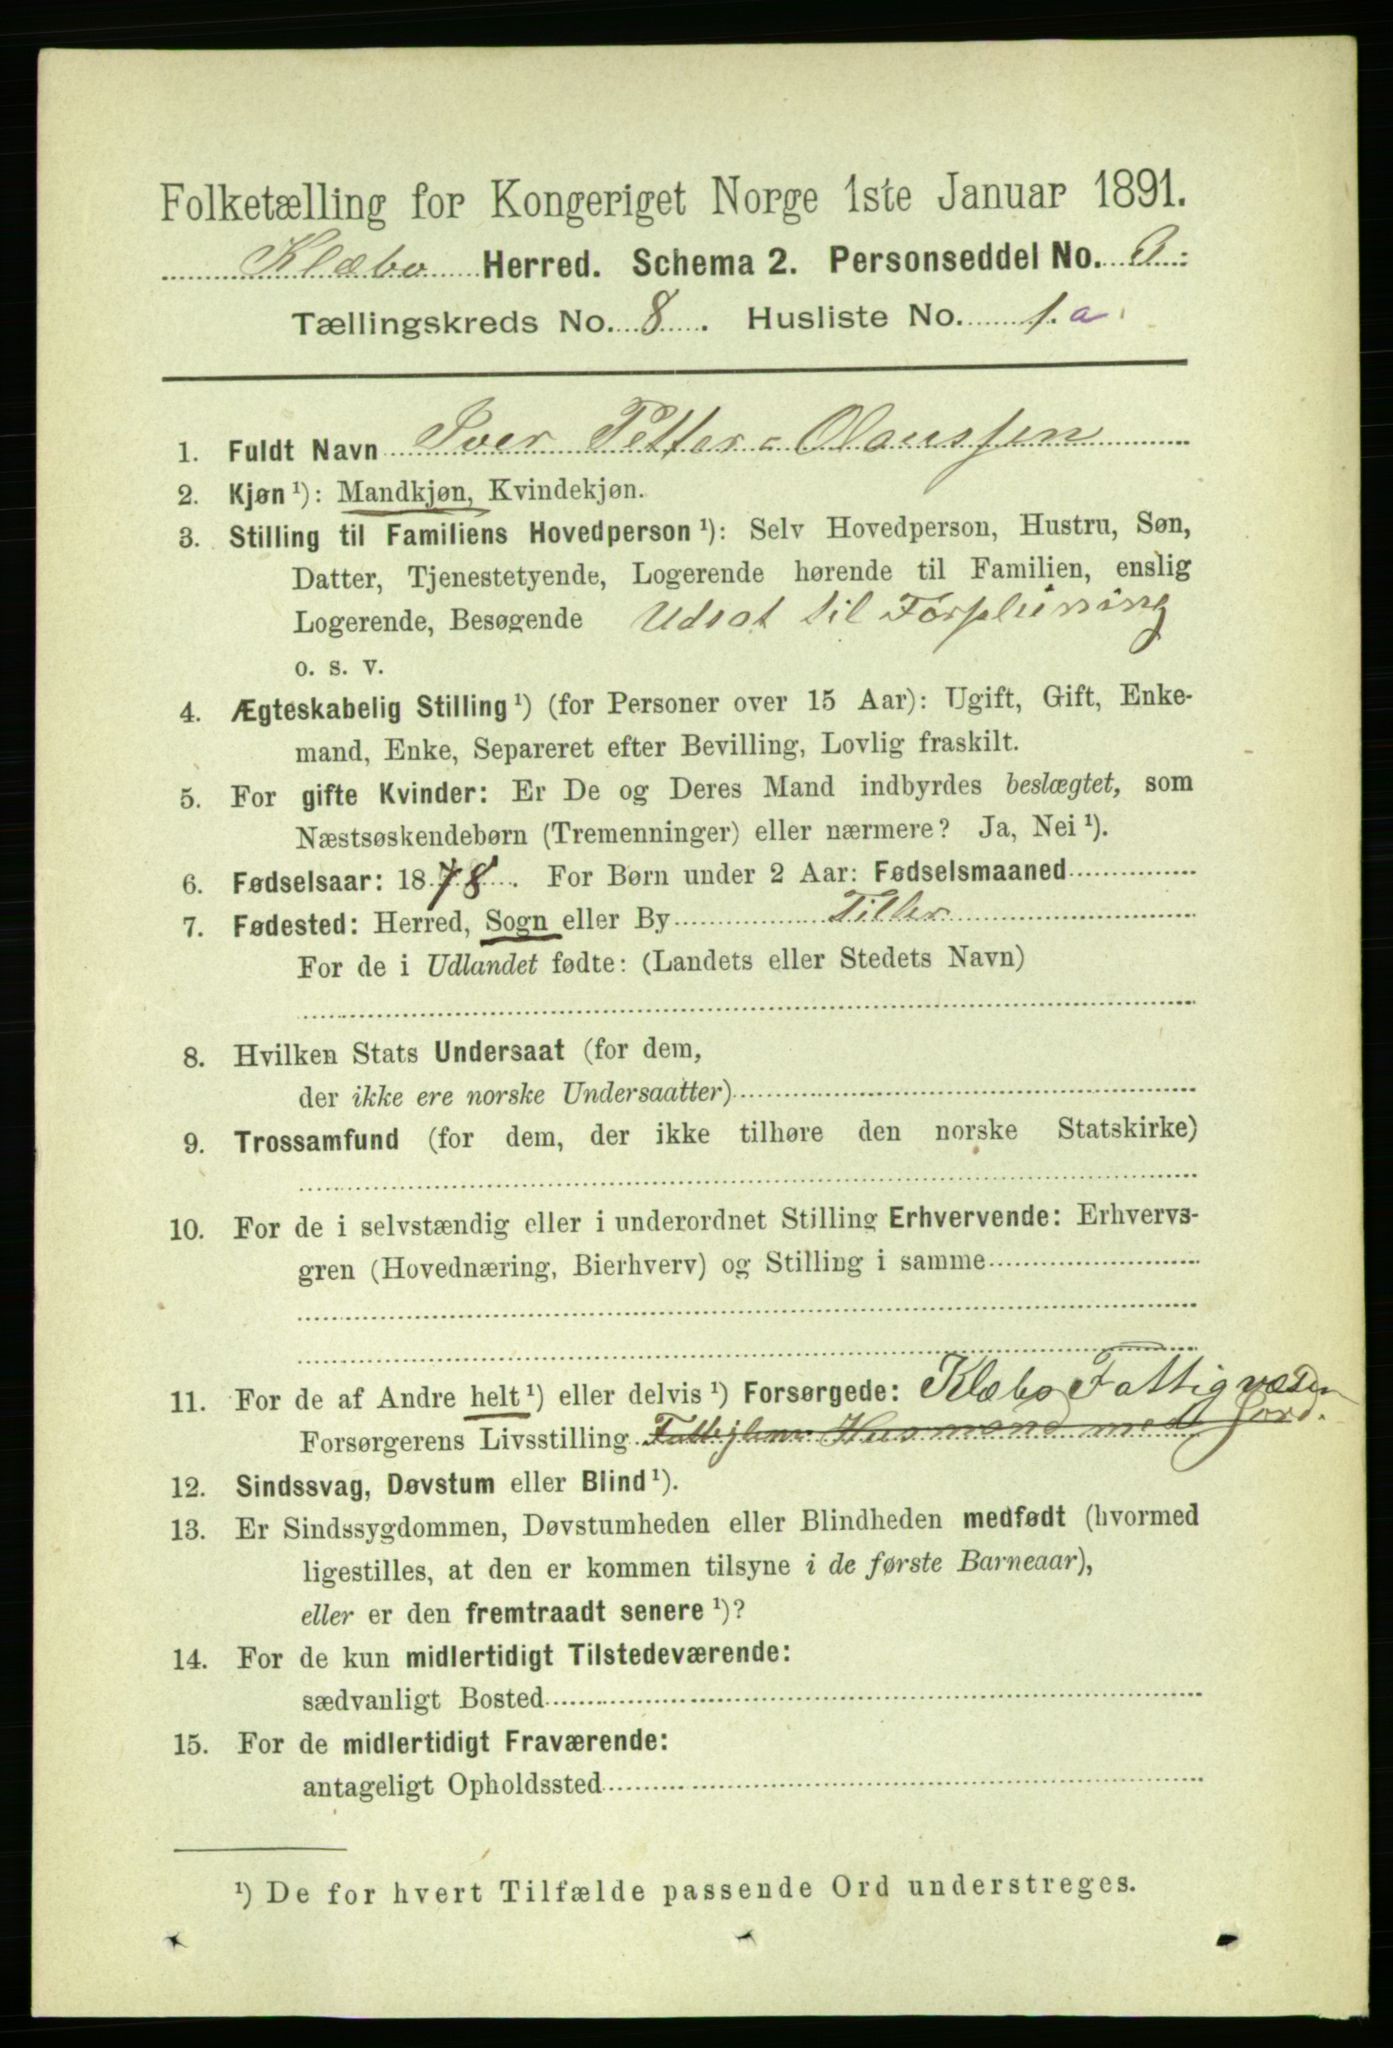 Folketælling for Kongeriget Norge 1ste Januar 1891.
Klæbo Herred. Schema 2. Personseddel No.
Tællingskreds No. 8. Husliste No. 1.a
1. Fuldt Navn Iver Petter Olaussen
2. Kjøn ¹): Mandkjøn, Kvindekjøn.
3. Stilling til Familiens Hovedperson ¹): Selv Hovedperson, Hustru, Søn,
Datter, Tjenestetyende, Logerende hørende til Familien, enslig
Logerende, Besøgende Udsat til Forpleining
o. s. v.
4. Ægteskabelig Stilling ¹) (for Personer over 15 Aar): Ugift, Gift, Enke-
mand, Enke, Separeret efter Bevilling, Lovlig fraskilt.
5. For gifte Kvinder: Er De og Deres Mand indbyrdes beslægtet, som
Næstsøskendebørn (Tremenninger) eller nærmere? Ja, Nei ¹).
6. Fødselsaar: 1878. For Børn under 2 Aar: Fødselsmaaned
7. Fødested: Herred, Sogn eller By Tiller
For de i Udlandet fødte: (Landets eller Stedets Navn)
8. Hvilken Stats Undersaat (for dem,
der ikke ere norske Undersaatter)
9. Trossamfund (for dem, der ikke tilhøre den norske Statskirke)
10. For de i selvstændig eller i underordnet Stilling Erhvervende: Erhvervs-
gren (Hovednæring, Bierhverv) og Stilling i samme
11. For de af Andre helt ¹) eller delvis ¹) Forsørgede: Klæbo Fattigvæsen
Forsørgerens Livsstilling Husmand med Jord.
12. Sindssvag, Døvstum eller Blind ¹).
13. Er Sindssygdommen, Døvstumheden eller Blindheden medfødt (hvormed
ligestilles, at den er kommen tilsyne i de første Barneaar),
eller er den fremtraadt senere ¹)?
14. For de kun midlertidigt Tilstedeværende:
sædvanligt Bosted
15. For de midlertidigt Fraværende:
antageligt Opholdssted
¹) De for hvert Tilfælde passende Ord understreges.